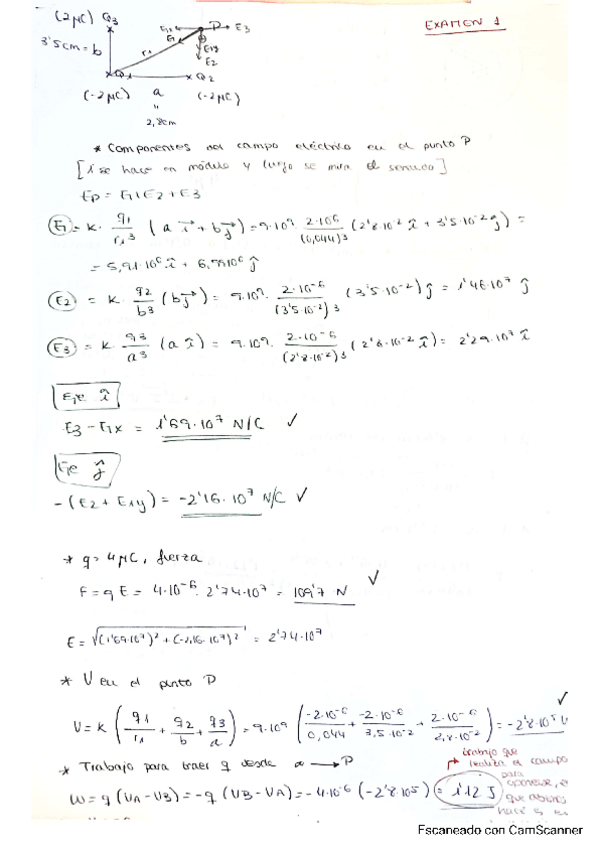 EXAMEN 1
(2μC) Q3
E1x P E3
E1 E1y
E2
3'5cm = b
r1
Q1 Q2
(-2μC) a (-2μC)
"
2,8cm
* Componentes del campo eléctrico en el punto P
[1º se hace en módulo y luego se mira el sentido]
Ep = E1+E2+E3
E1 = k · q1/r1³ (a i + b j) = 9·10⁹ · 2·10⁻⁶/(0,044)³ (2'8·10⁻² i + 3'5·10⁻² j) =
= 5,91·10⁶ i + 6,79·10⁶ j
E2 = k · q2/b³ (b j) = 9·10⁹ · 2·10⁻⁶/(3'5·10⁻²)³ (3'5·10⁻²) j = 1'46·10⁷ j
E3 = k · q3/a³ (a i) = 9·10⁹ · 2·10⁻⁶/(2'8·10⁻²)³ (2'8·10⁻² i) = 2'29·10⁷ i
Eje i
E3 - E1x = 1'69·10⁷ N/C ✓
Eje j
-(E2 + E1y) = -2'16·10⁷ N/C ✓
* q = 4μC, fuerza
F = q E = 4·10⁻⁶ · 2'74·10⁷ = 109'7 N ✓
E = √((1'69·10⁷)² + (-2,16·10⁷)²) = 2'74·10⁷
* V en el punto P
V = k (q1/r1 + q2/b + q3/a) = 9·10⁹ (-2·10⁻⁶/0,044 + -2·10⁻⁶/3,5·10⁻² + 2·10⁻⁶/2,8·10⁻²) = -2'8·10⁵ V ✓
* Trabajo para traer q desde ∞ → P
trabajo que
realiza el campo
para
W = q (VA - VB) = -q (VB - VA) = -4·10⁻⁶ (-2'8·10⁵) = 1'12 J
Escaneado con CamScanner